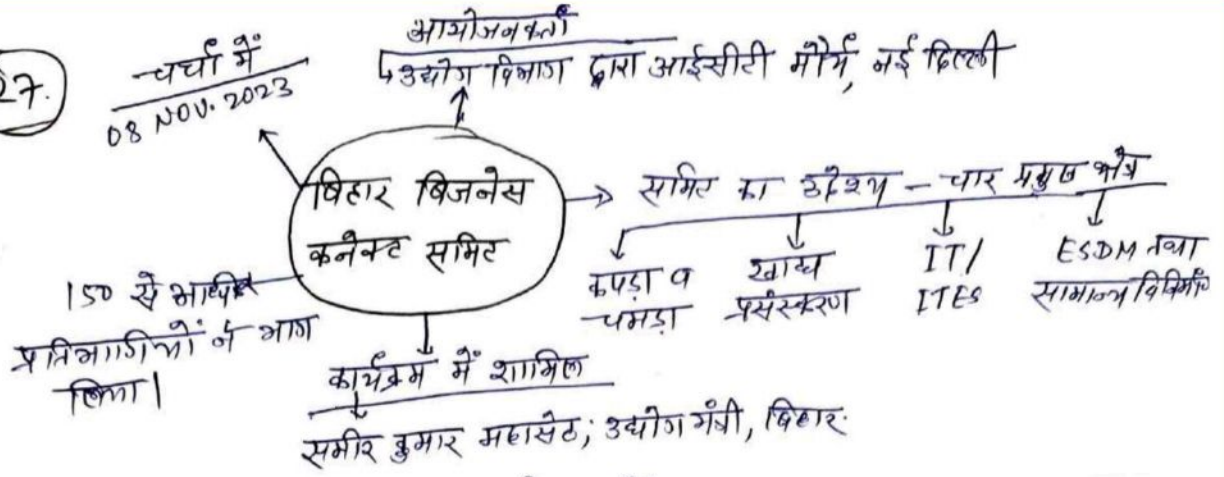 27.
चर्चा में
08 NOV. 2023
आयोजनकर्ता
उद्योग विभाग द्वारा आईसीटी मौर्य, नई दिल्ली
बिहार बिजनेस
कनेक्ट समिट
समिट का उद्देश्य – चार प्रमुख क्षेत्र
कपड़ा व
चमड़ा
खाद्य
प्रसंस्करण
IT/
ITES
ESDM तथा
सामान्य विनिर्माण
150 से अधिक
प्रतिभागियों ने भाग
लिया।
कार्यक्रम में शामिल
समीर कुमार महासेठ; उद्योग मंत्री, बिहार